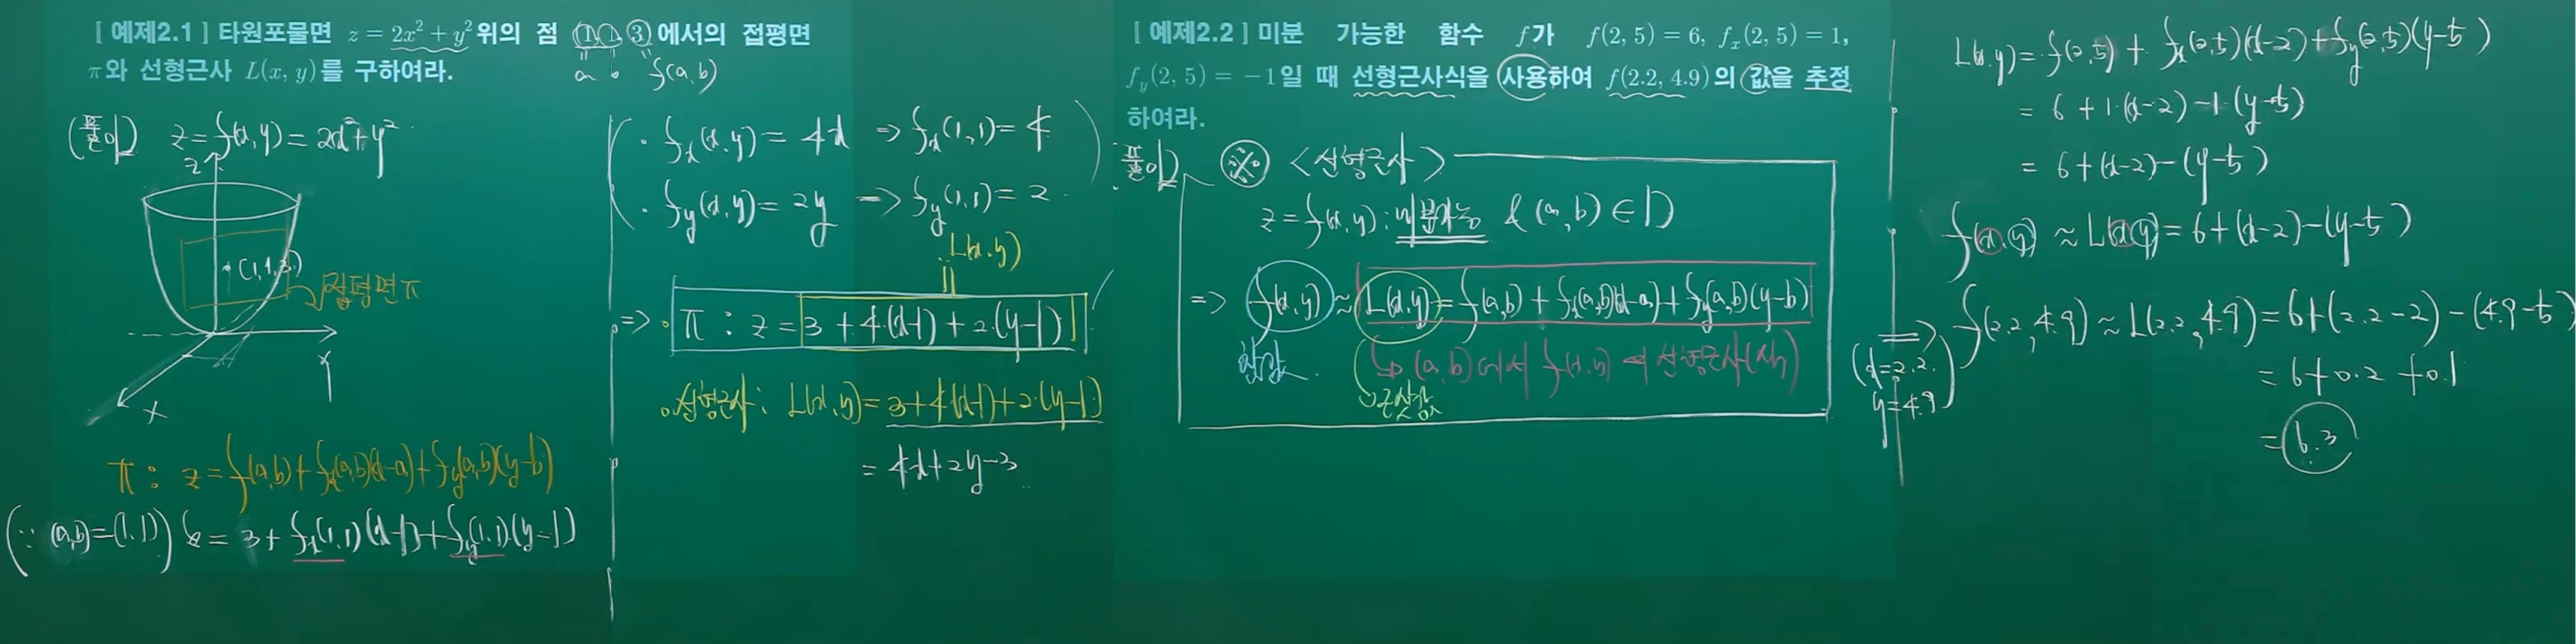 [ 예제2.1 ] 타원포물면 z = 2x² + y² 위의 점 (1, 1, 3)에서의 접평면
π와 선형근사 L(x, y)를 구하여라.
a b f(a,b)
(풀이) z = f(x,y) = 2x² + y²
z
(1,1,3)
접평면 π
y
x
π : z = f(a,b) + fx(a,b)(x-a) + fy(a,b)(y-b)
(∵ (a,b)=(1,1)) z = 3 + fx(1,1)(x-1) + fy(1,1)(y-1)
· fx(x,y) = 4x ⇒ fx(1,1) = 4
· fy(x,y) = 2y ⇒ fy(1,1) = 2
L(x,y)
=
⇒ π : z = 3 + 4·(x-1) + 2·(y-1)
선형근사 : L(x,y) = 3 + 4·(x-1) + 2·(y-1)
= 4x + 2y - 3
[ 예제2.2 ] 미분 가능한 함수 f가 f(2, 5) = 6, fx(2, 5) = 1,
fy(2, 5) = -1일 때 선형근사식을 사용하여 f(2.2, 4.9)의 값을 추정
하여라.
풀이) ※ <선형근사>
z = f(x,y) : 미분가능 & (a,b) ∈ D
⇒ f(x,y) ≈ L(x,y) = f(a,b) + fx(a,b)(x-a) + fy(a,b)(y-b)
↳ (a,b)에서 f(x,y)의 선형근사(식)
근삿값
L(x,y) = f(2,5) + fx(2,5)(x-2) + fy(2,5)(y-5)
= 6 + 1·(x-2) - 1·(y-5)
= 6 + (x-2) - (y-5)
f(x,y) ≈ L(x,y) = 6 + (x-2) - (y-5)
⇒ f(2.2, 4.9) ≈ L(2.2, 4.9) = 6 + (2.2-2) - (4.9-5)
(x=2.2.
y=4.9)
= 6 + 0.2 + 0.1
= 6.3